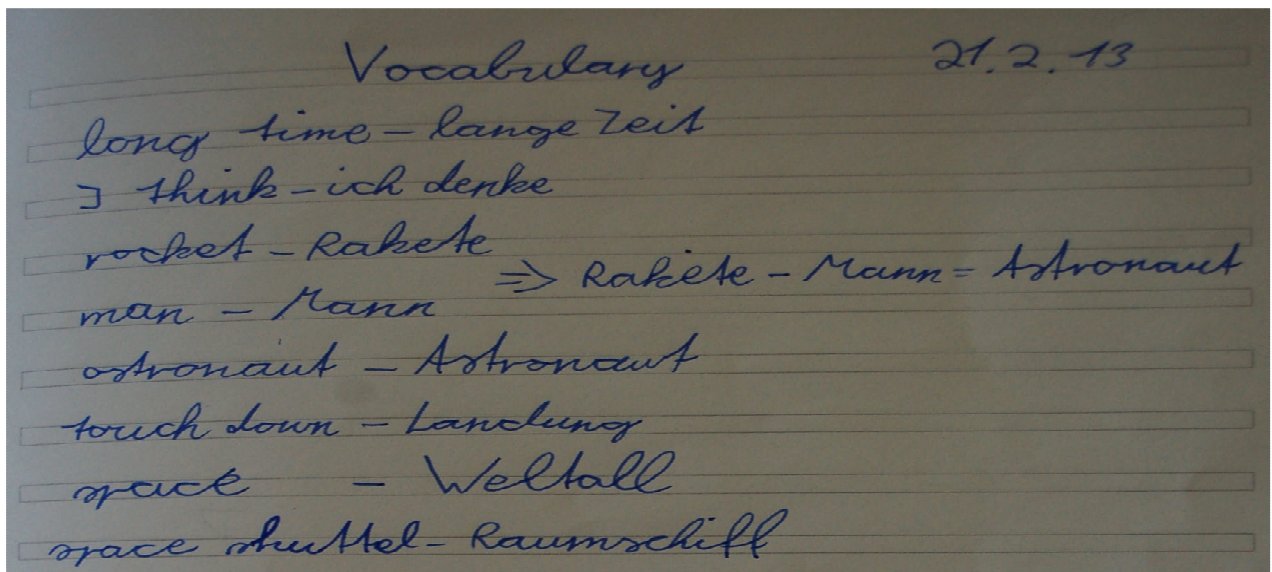 Vocabulary 21.2.13
long time - lange Zeit
I think - ich denke
rocket - Rakete
=> Rakete - Mann = Astronaut
man - Mann
astronaut - Astronaut
touch down - Landung
space - Weltall
space shuttel - Raumschiff